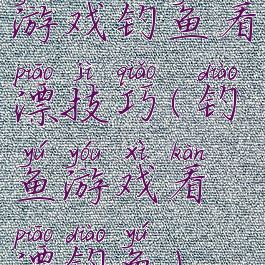 游戏钓鱼看
piāo jì qiǎo diào
漂技巧(钓
yú yóu xì kàn
鱼游戏看
piāo diào yú
漂钓鱼)